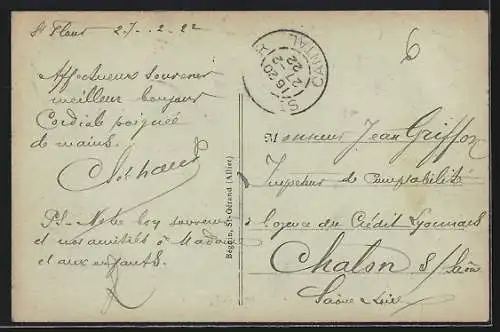 St Flour 27-2-22
Affectueux souvenir
meilleur bonjour
Cordiale poignée
de mains.
Pl. Notre bon souvenir
et nos amitiés à Madame
et aux enfants.
Béguin, St-Gérand (Allier)
16 20
27-2
22
CANTAL
6
Monsieur Jean Griffon
Inspecteur de comptabilité
à l'agence du Crédit Lyonnais
Chalon s/ Saône
Saône & Loire